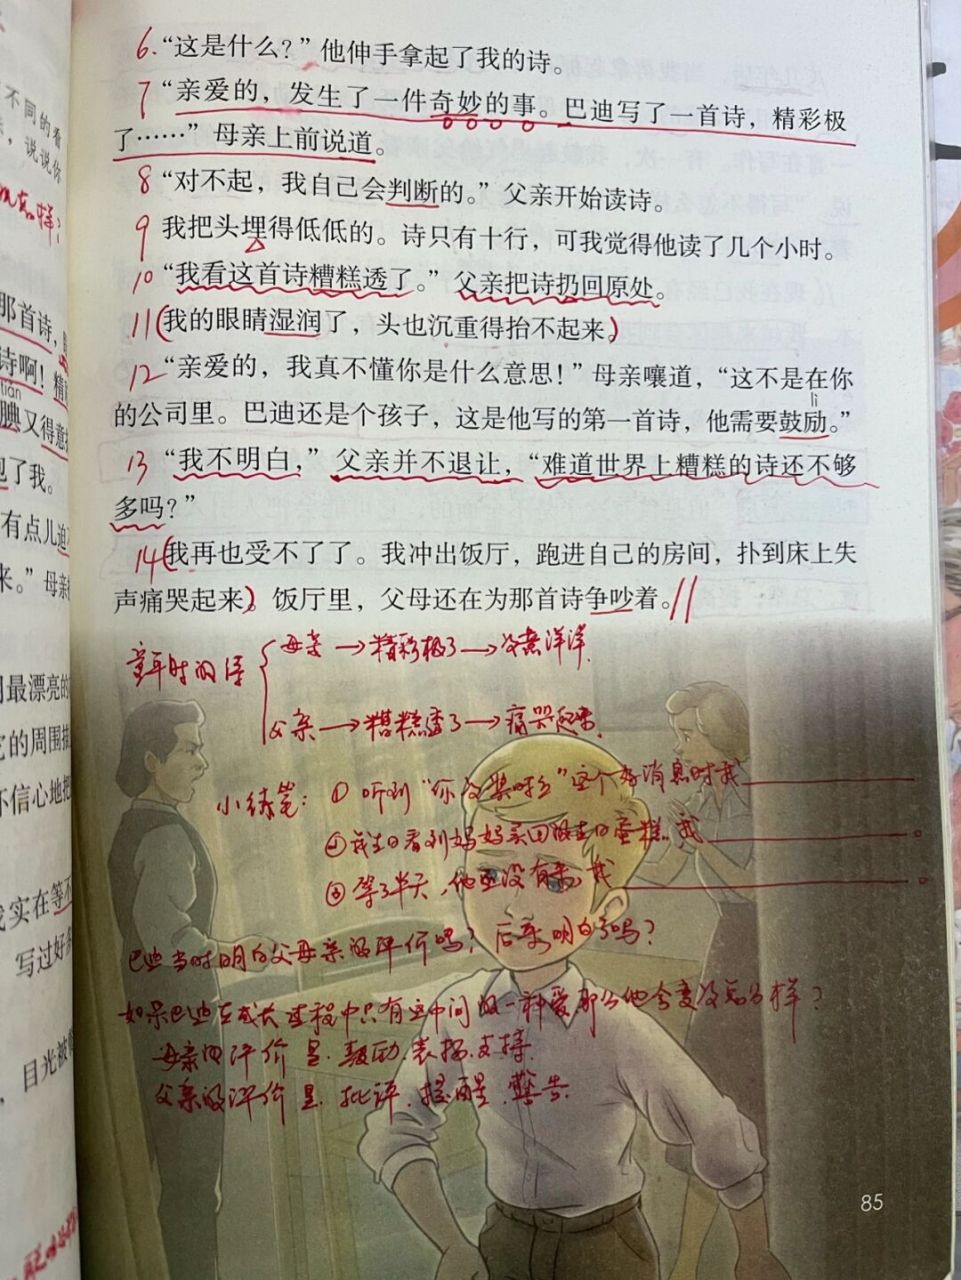 不同的看
，说说你
么样？
那首诗，
诗啊！精
tiǎn
腆又得意
抱了我。
有点儿迫
来。”母亲
用最漂亮的
它的周围描
不信心地把
我实在等不
写过好
目光被
6.“这是什么？”他伸手拿起了我的诗。
7“亲爱的，发生了一件奇妙的事。巴迪写了一首诗，精彩极
了……”母亲上前说道。
8“对不起，我自己会判断的。”父亲开始读诗。
9我把头埋得低低的。诗只有十行，可我觉得他读了几个小时。
10“我看这首诗糟糕透了。”父亲把诗扔回原处。
11（我的眼睛湿润了，头也沉重得抬不起来）
12“亲爱的，我真不懂你是什么意思！”母亲嚷道，“这不是在你
lì
的公司里。巴迪还是个孩子，这是他写的第一首诗，他需要鼓励。”
13“我不明白，”父亲并不退让，“难道世界上糟糕的诗还不够
多吗？”
14（我再也受不了了。我冲出饭厅，跑进自己的房间，扑到床上失
声痛哭起来）。饭厅里，父母还在为那首诗争吵着。//
童年时的诗 母亲→精彩极了→得意洋洋
父亲→糟糕透了→痛哭起来
小练笔：①听到“你父 ”这个好消息时我
②我生日看到妈妈买回的生日蛋糕，我 。
③等了半天，他还没有来，我 。
巴迪当时明白父母亲的评价吗？后来明白了吗？
如果巴迪在成长过程中只有这中间的一种爱那么他会变得怎么样？
母亲的评价是 鼓励.表扬.支持.
父亲的评价是 批评.提醒.警告.
85